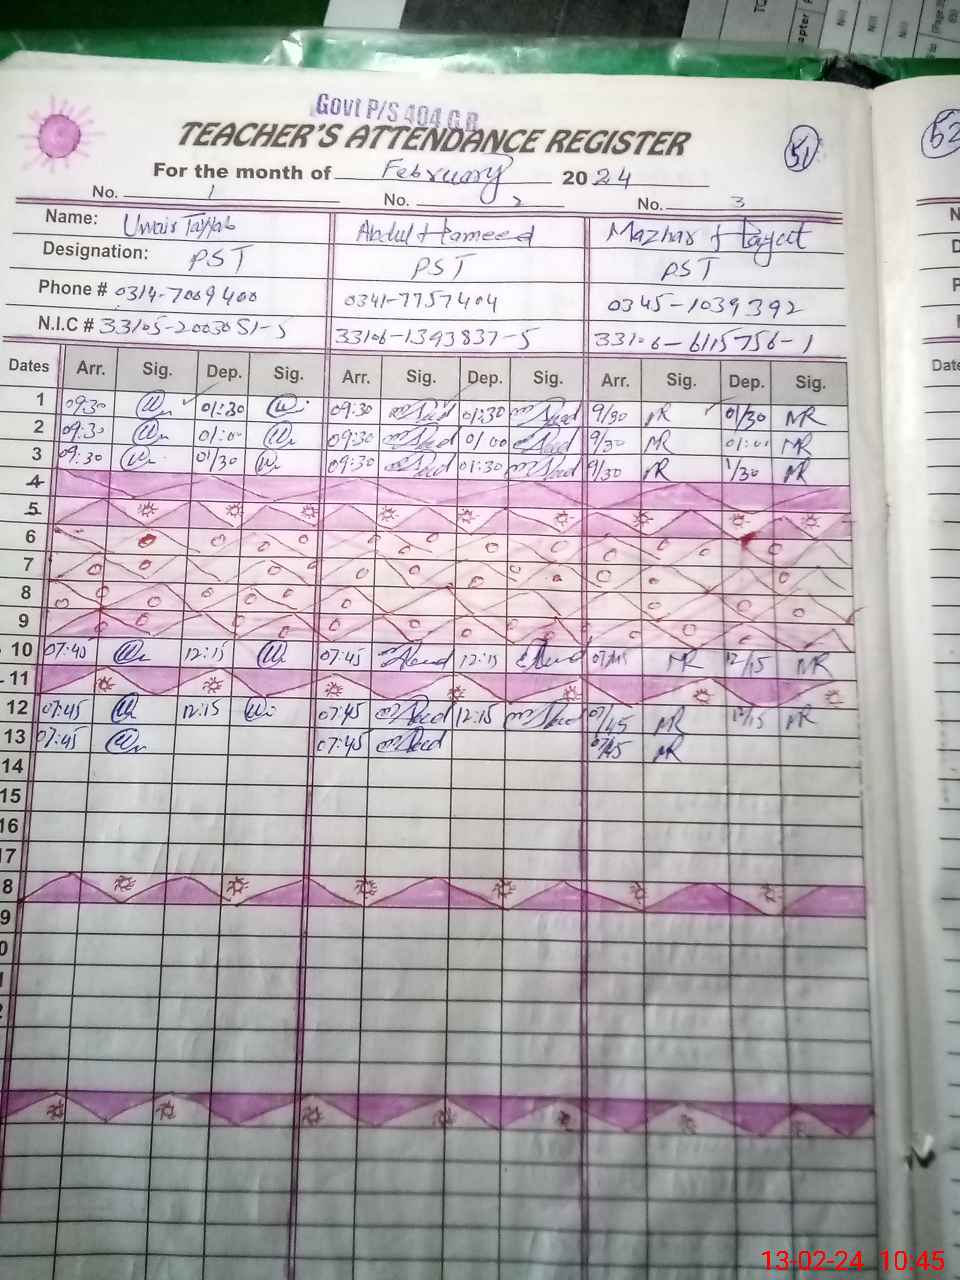 Govt P/S 404 G.B
TEACHER'S ATTENDANCE REGISTER
51
52
For the month of February 2024
No. 1 No. 2 No. 3
Name: Uwais Tayyab Abdul Hameed Mazhar Hayat
Designation: PST PST PST
Phone # 0314-7009400 0341-7757404 0345-1039392
N.I.C # 33105-2003051-5 33106-1393837-5 33106-6115756-1
Dates Arr. Sig. Dep. Sig. Arr. Sig. Dep. Sig. Arr. Sig. Dep. Sig.
1 09:30 01:30 09:30 01:30 9/30 MR 01/30 MR
2 09:30 01:00 09:30 01/00 9/30 MR 01:00 MR
3 09:30 01/30 09:30 01:30 9/30 MR 1/30 MR
4
5
6
7
8
9
10 07:45 12:15 07:45 12:15 07/45 MR 12/15 MR
11
12 07:45 12:15 07:45 12:15 07/45 MR 12/15 MR
13 07:45 07:45 07/45 MR
14
15
16
17
8
9
0
1
2
13-02-24 10:45